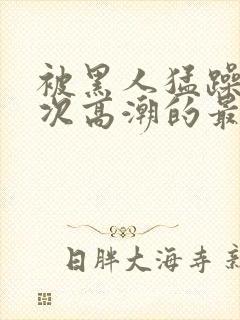 被黑人猛躁
次高潮的最
日胖大海寺 新